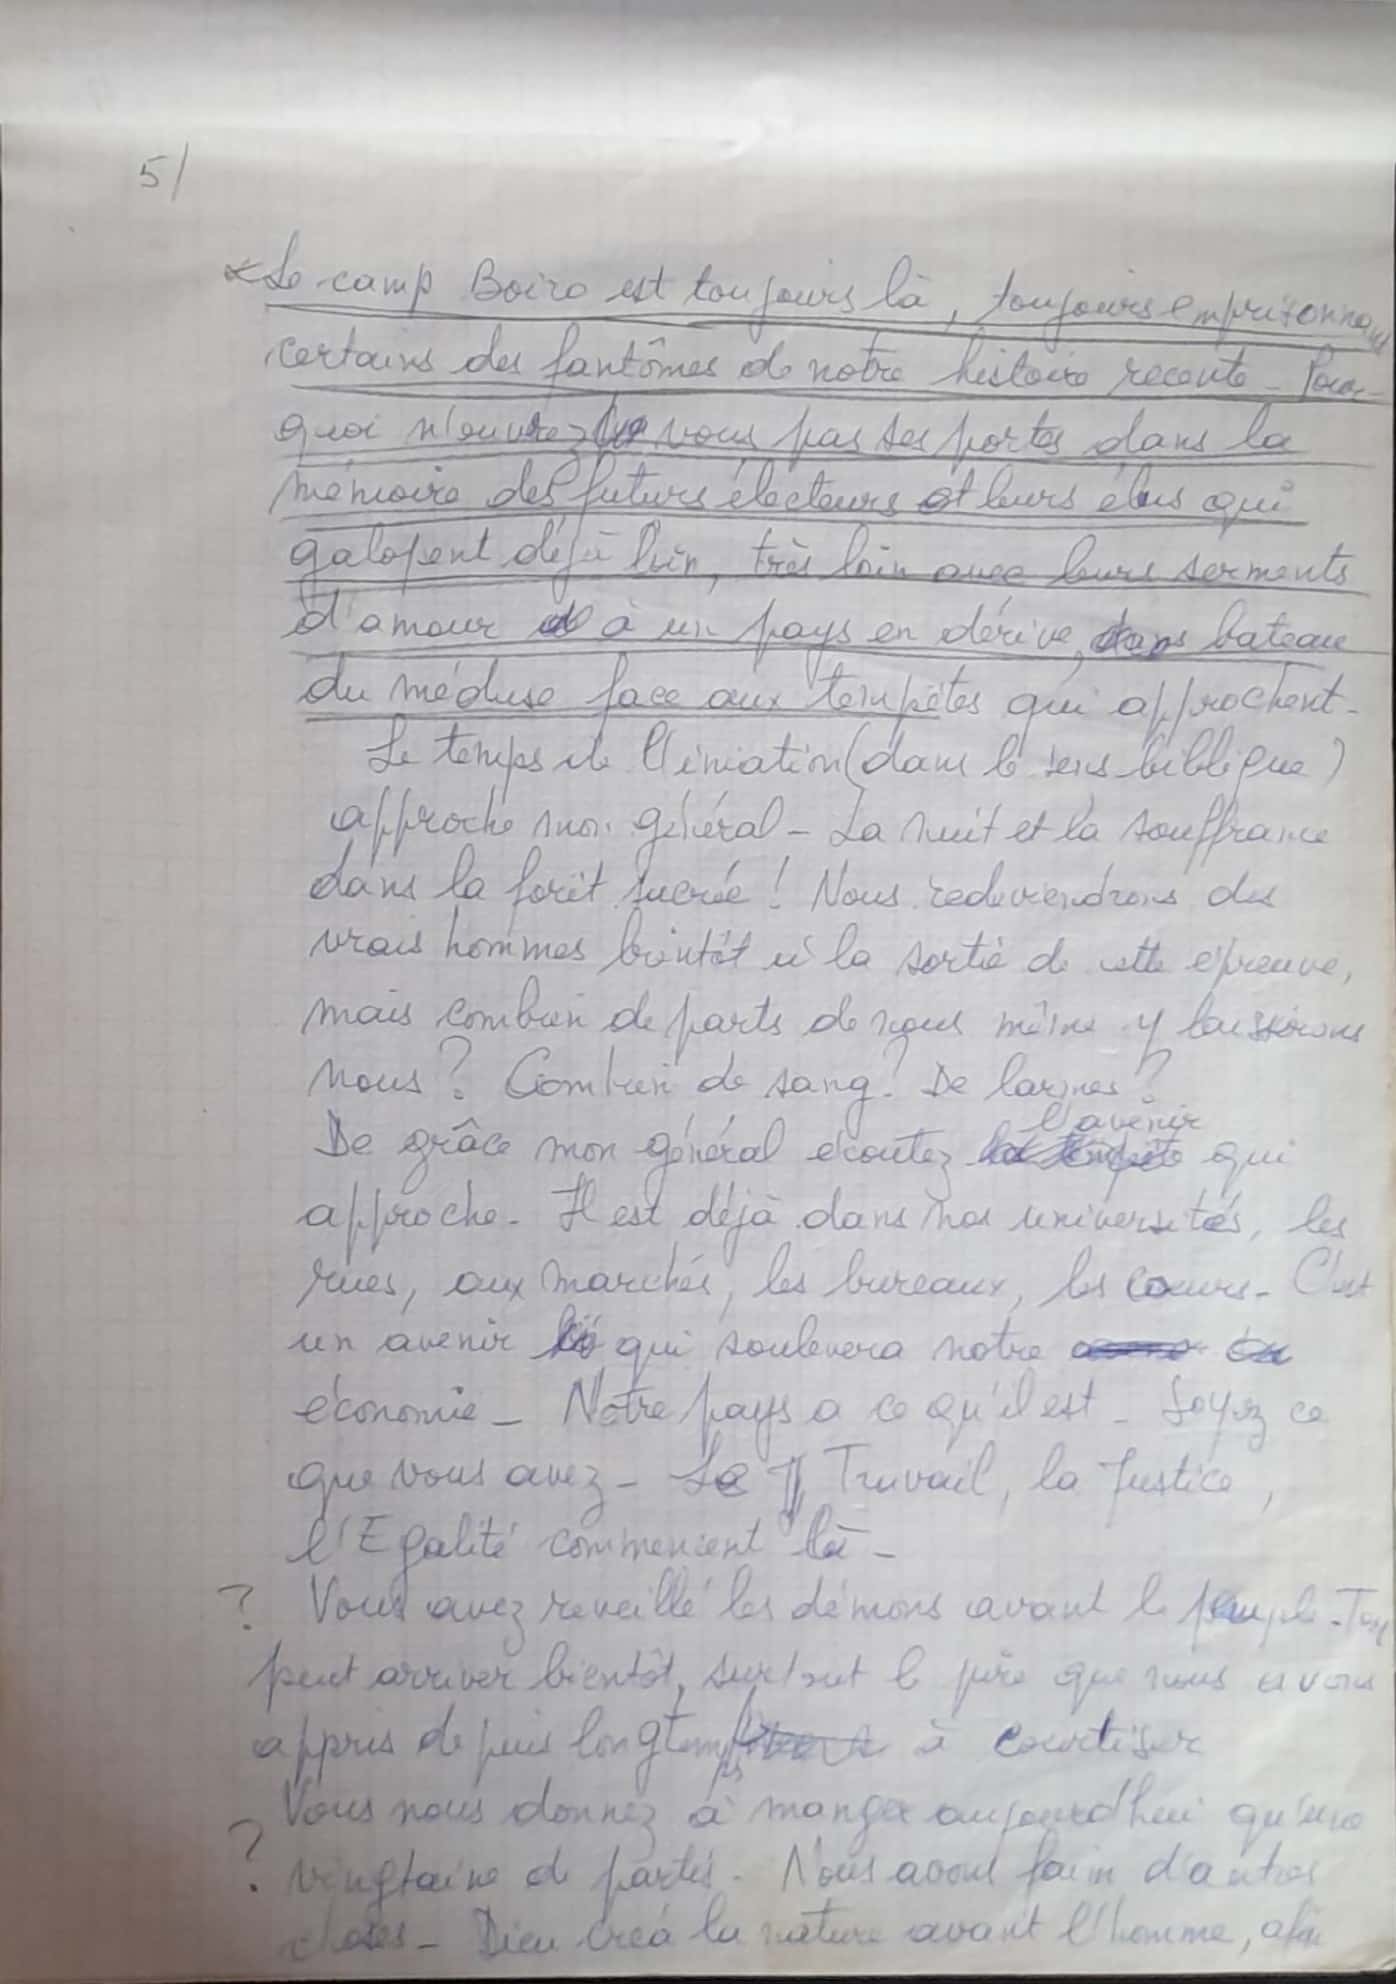 5/
Le camp Boiro est toujours là, toujours emprisonnant
certains des fantômes de notre histoire recente - Pour-
quoi n'ouvrez vous pas ses portes dans la
mémoire des futurs électeurs et leurs élus qui
galopent déjà loin, très loin avec leurs serments
d'amour à un pays en dérive, dans bateau
du méduse face aux tempêtes qui approchent -
Le temps de l'iniation (dans le sens biblique)
approche mon général - La nuit et la souffrance
dans la forêt sacrée ! Nous redeviendrons des
vrais hommes bientôt à la sortie de cette épreuve,
mais combien de parts de nous même y laisserons
nous ? Combien de sang ? De larmes ?
De grâce mon général écoutez l'avenir qui
approche - Il est déjà dans nos universités, les
rues, aux marchés, les bureaux, les cœurs - C'est
un avenir qui soulevera notre
économie - Notre pays a ce qu'il est - Soyez ce
que vous avez - Le Travail, la Justice,
l'Egalité commencent là -
? Vous avez reveillé les démons avant le peuple - Tout
peut arriver bientôt, surtout le pire que nous avons
appris depuis longtemps à courtiser
Vous nous donnez à manger aujourd'hui qu'une
? vingtaine de partis - Nous avons faim d'autres
choses - Dieu créa la nature avant l'homme, afin